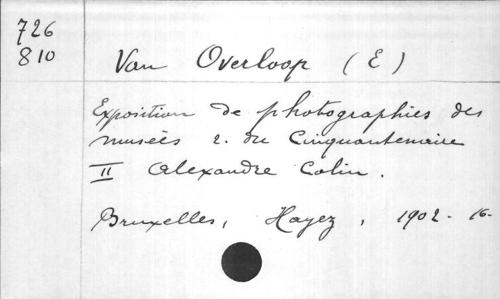 726
810
Van Overloop (E)
Exposition de photographies des
musées r. du Cinquantenaire
II Alexandre Colin.
Bruxelles, Hayez, 1902. 16.